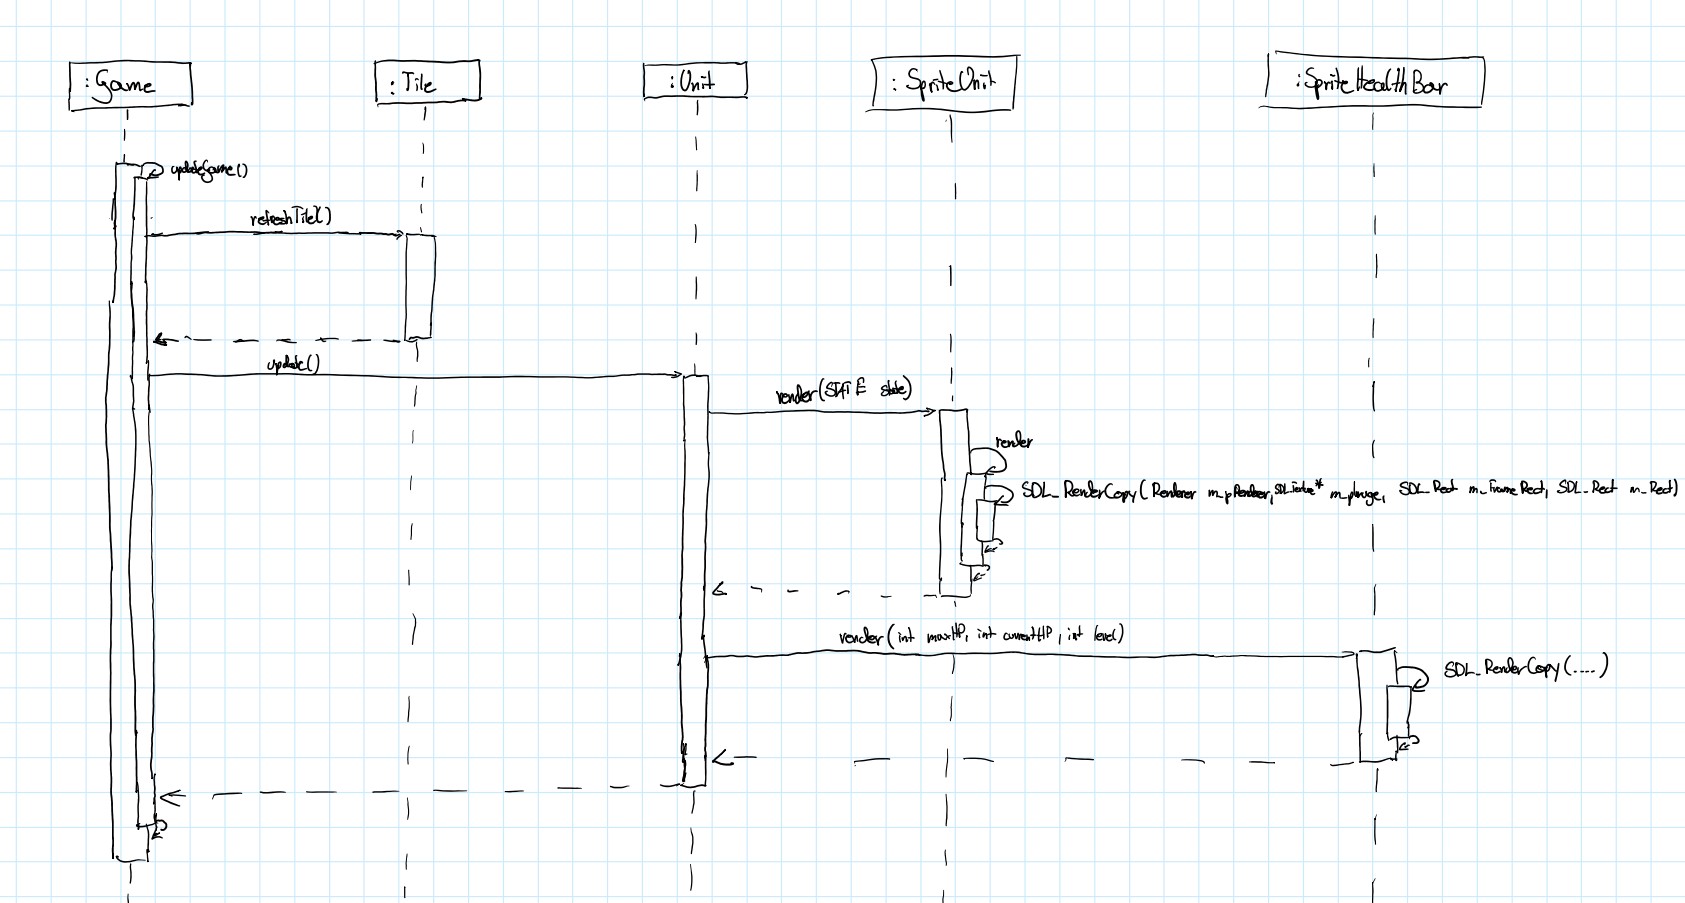 :Game
:Tile
:Unit
: SpriteUnit
:SpriteHealthBar
updateGame()
refreshTile()
update()
render(STATE state)
render
SDL_RenderCopy(Renderer m_pRenderer, SDL_Texture* m_pImage, SDL_Rect m_FrameRect, SDL_Rect m_Rect)
render(int maxHP, int currentHP, int level)
SDL_RenderCopy(....)